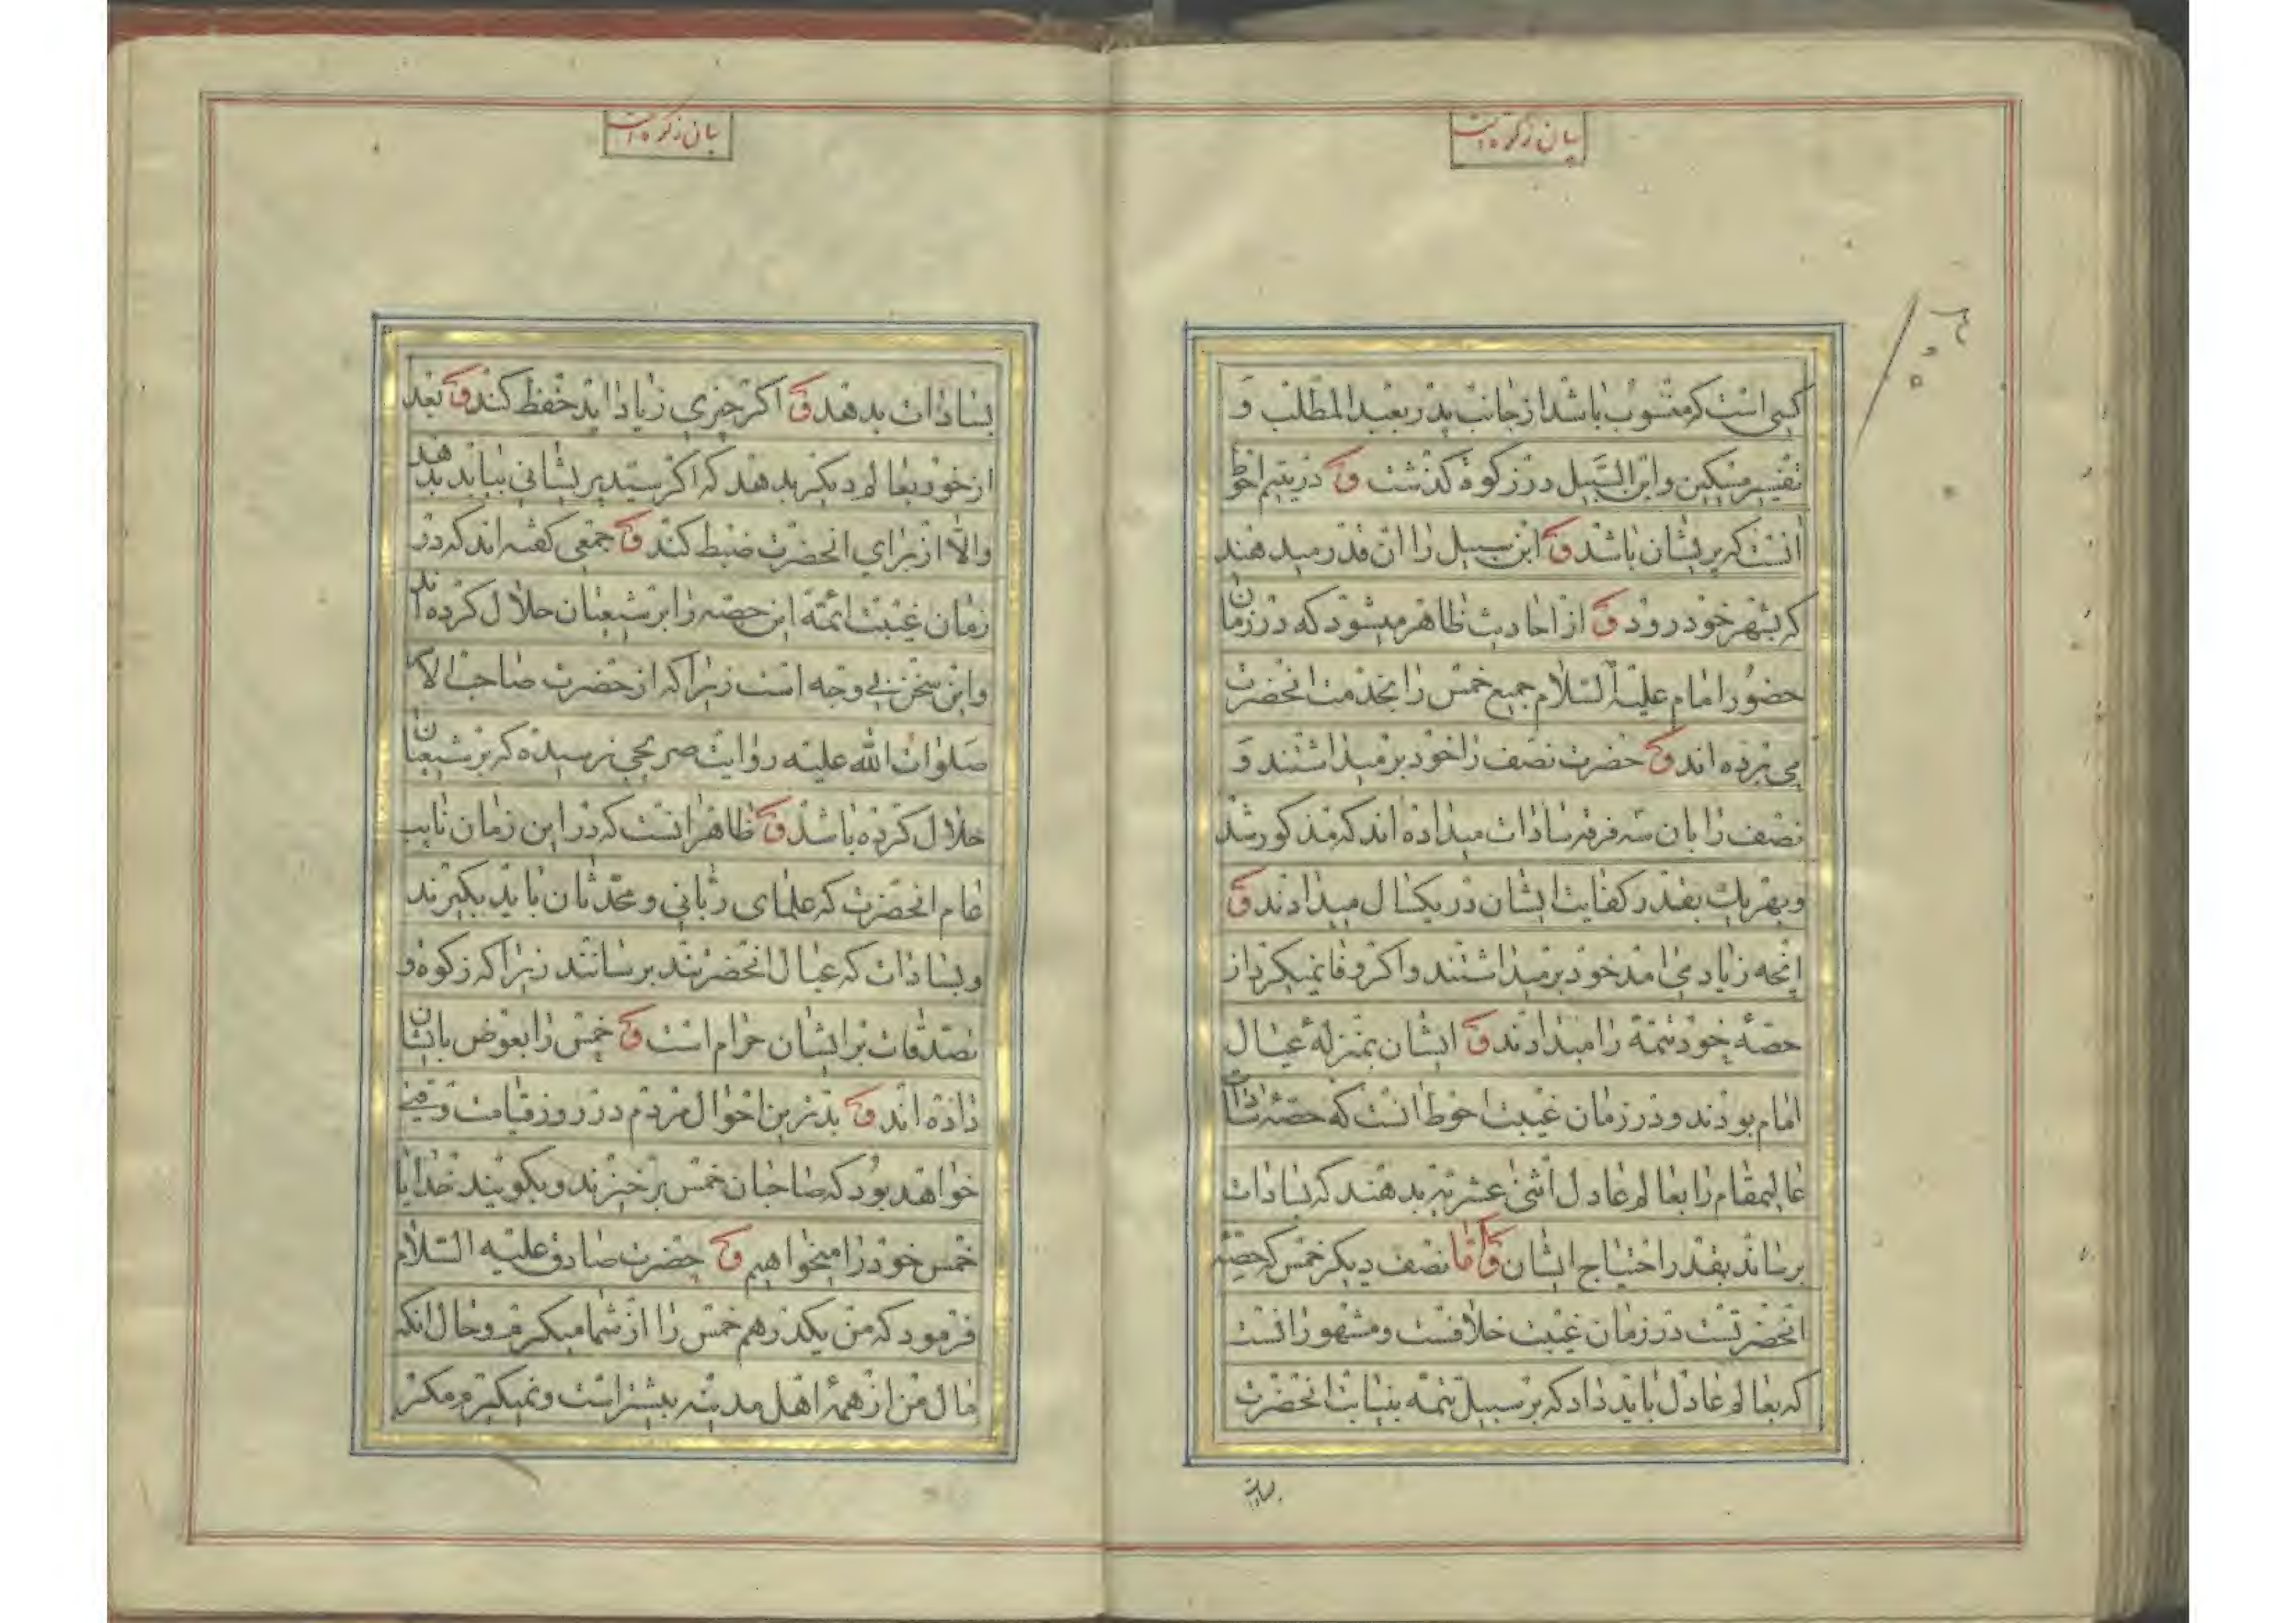 بیان زکوة است
کسی است که منسوب باشد از جانب پدر بعبد المطلب و
تفسیر مسکین و ابن السبیل در زکوة گذشت و در یتیم احوط
آنست که پریشان باشد و ابن سبیل را آن قدر میدهند
که بشهر خود رود و از احادیث ظاهر میشود که در زمان
حضور امام علیه السلام جمیع خمس را بخدمت انحضرت
می برده اند و حضرت نصف را خود بر میداشتند و
نصف را بان سه فرقه سادات میداده اند که مذکور شد
و بهر یك بقدر کفایت ایشان در یکسال میدادند و
انچه زیاد می امد خود بر میداشتند و اکر وفا نمیکرد از
حصهٔ خود تتمه را میدادند و ایشان بمنزلهٔ عیال
امام بودند و در زمان غیبت احوط انست که حصهٔ سادات
عالیمقام را بعالم عادل اثنی عشریه بدهند که بسادات
برساند بقدر احتیاج ایشان و اما نصف دیکر خمس که حصهٔ
انحضرتست در زمان غیبت خلافست و مشهور انست
که بعالم عادل باید داد که بر سبیل تتمه بنیابت انحضرت
بسادات
بیان زکوة است
بسادات بدهد و اکر چیزی زیاد اید حفظ کند و بعد
از خود بعالم دیکر بدهند که اکر سید پریشانی بیابد بدهد
والا از برای انحضرت ضبط کند و جمعی کفته اند که در
زمان غیبت ائمة این حصه را بر شیعیان حلال کرده اند
و این سخن بی وجه است زیرا که از حضرت صاحب الا
صلوات الله علیه روایت صریحی نرسیده که بر شیعیان
حلال کرده باشد و ظاهر انست که در این زمان نایب
عام انحضرت که علمای ربانی و محدثان باید بکیرند
و بسادات که عیال انحضرتند برسانند زیرا که زکوة و
تصدقات بر ایشان حرام است و خمس را بعوض بایشان
داده اند و بدترین احوال مردم در روز قیامت وقتی
خواهد بود که صاحبان خمس برخیزند و بکویند خدایا
خمس خود را میخواهیم و حضرت صادق علیه السلام
فرمود که من یکدرهم خمس را از شما میکیرم و حال انکه
مال من از همهٔ اهل مدینه بیشتر است و نمیکیرم مکر